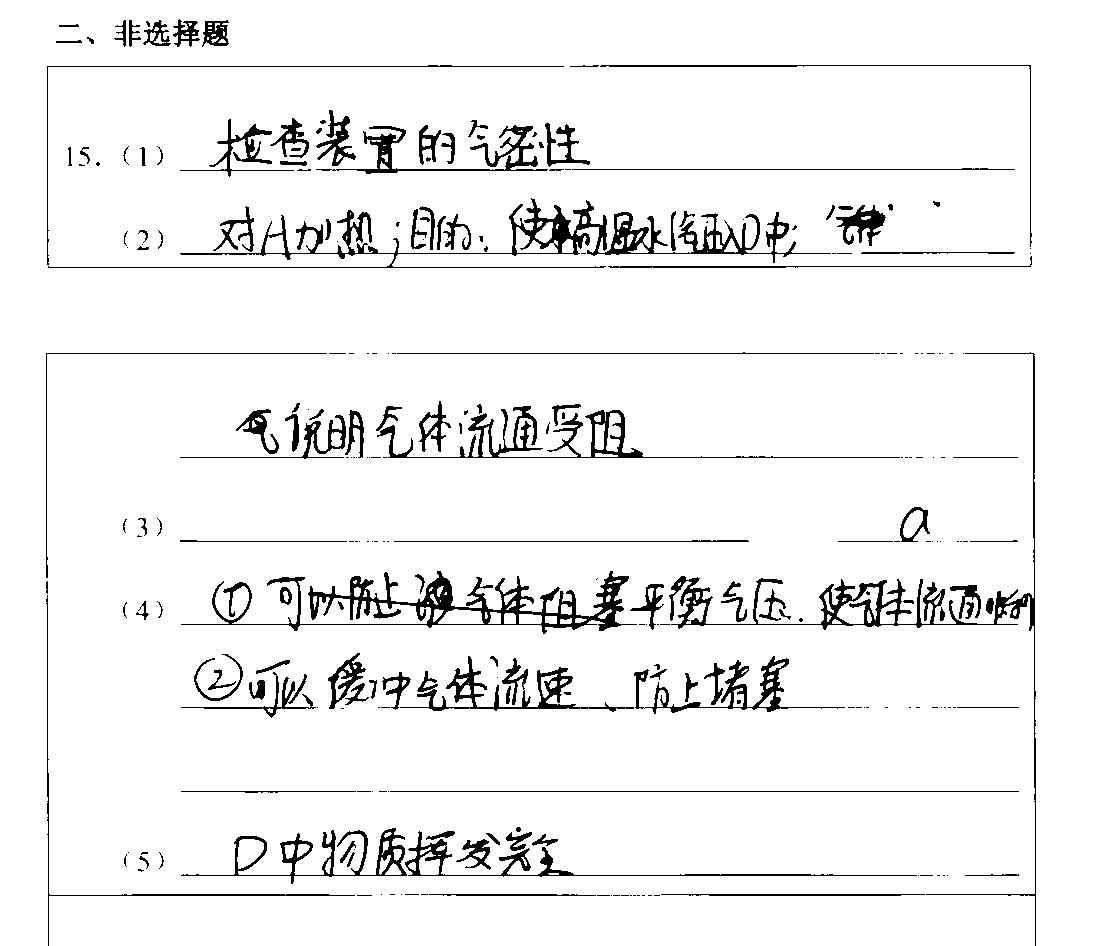 二、非选择题
15.（1） 检查装置的气密性
（2） 对A加热；目的：使高温水汽压入D中；
说明气体流通受阻
（3） a
（4） ①可以平衡气压、使气体流通
②可以缓冲气体流速、防止堵塞
（5） D中物质挥发完全